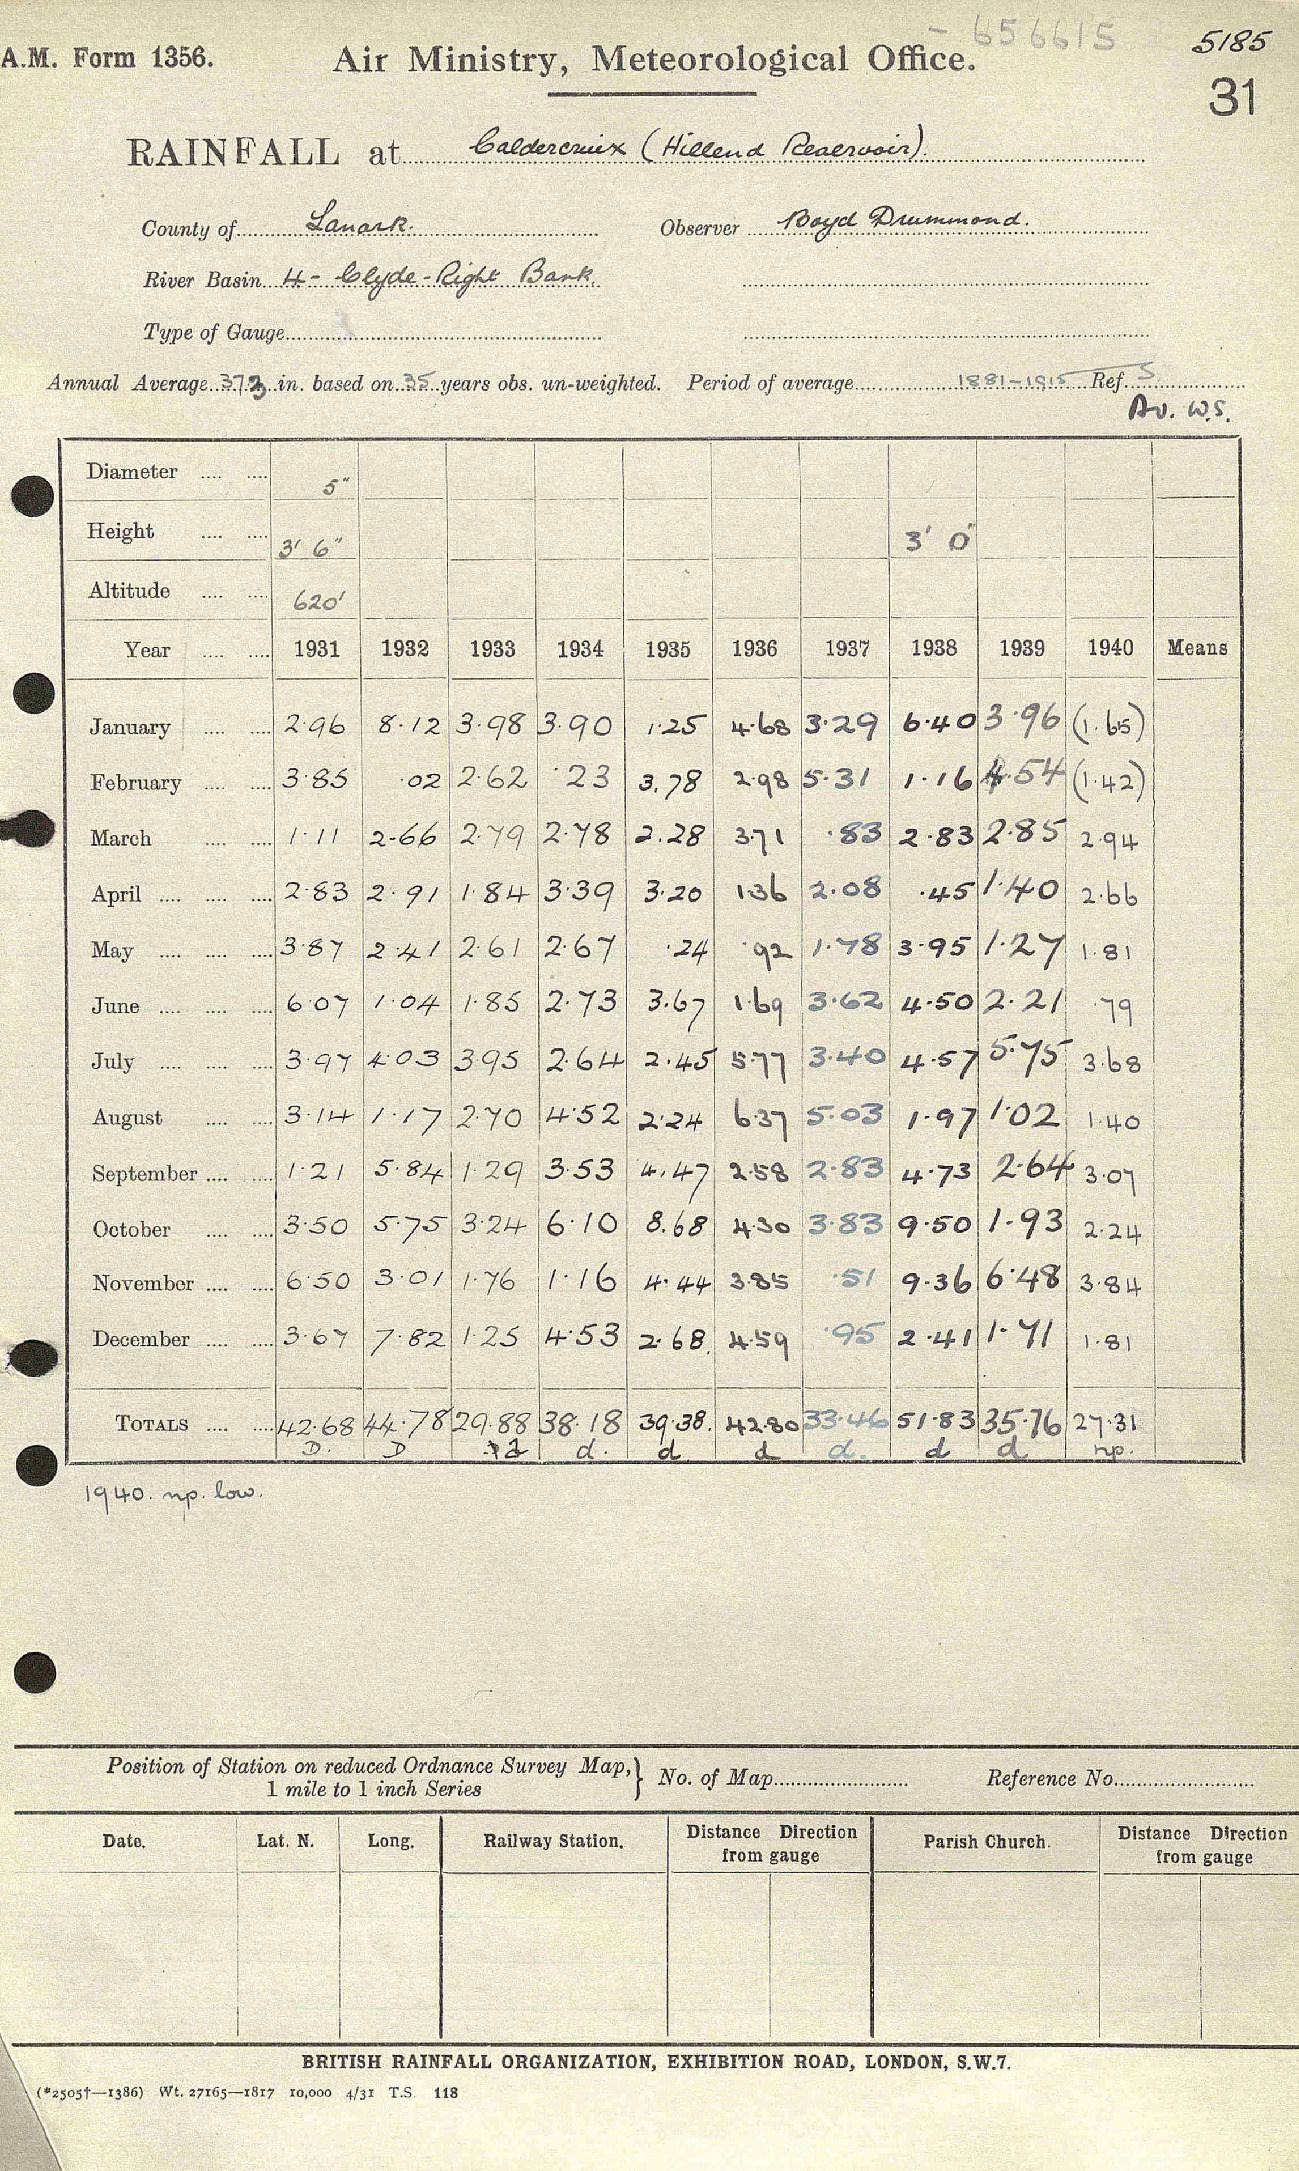 - 656615
5185
A.M. Form 1356. Air Ministry, Meteorological Office.
31
RAINFALL at Caldercruix (Hillend Reservoir).
County of Lanark. Observer Boyd Drummond.
River Basin 4 - Clyde - Right Bank.
Type of Gauge
Annual Average 37.3 in. based on 35 years obs. un-weighted. Period of average 1881-1915 Ref. S
Av. W.S.
Diameter 5"
Height 3' 6" 3' 0"
Altitude 620'
Year 1931 1932 1933 1934 1935 1936 1937 1938 1939 1940 Means
January 2.96 8.12 3.98 3.90 1.25 4.68 3.29 6.40 3.96 (1.65)
February 3.85 .02 2.62 .23 3.78 2.98 5.31 1.16 4.54 (1.42)
March 1.11 2.66 2.79 2.78 2.28 3.71 .83 2.83 2.85 2.94
April 2.83 2.91 1.84 3.39 3.20 1.36 2.08 .45 1.40 2.66
May 3.87 2.41 2.61 2.67 .24 .92 1.78 3.95 1.27 1.81
June 6.07 1.04 1.85 2.73 3.67 1.69 3.62 4.50 2.21 .79
July 3.97 4.03 3.95 2.64 2.45 5.77 3.40 4.57 5.75 3.68
August 3.14 1.17 2.70 4.52 2.24 6.37 5.03 1.97 1.02 1.40
September 1.21 5.84 1.29 3.53 4.47 2.58 2.83 4.73 2.64 3.07
October 3.50 5.75 3.24 6.10 8.68 4.30 3.83 9.50 1.93 2.24
November 6.50 3.01 1.76 1.16 4.44 3.85 .51 9.36 6.48 3.84
December 3.67 7.82 1.25 4.53 2.68 4.59 .95 2.41 1.71 1.81
TOTALS 42.68 44.78 29.88 38.18 39.38. 42.80 33.46 51.83 35.76 27.31
D. D d d. d d d. d d np.
1940. np. low.
Position of Station on reduced Ordnance Survey Map,
1 mile to 1 inch Series } No. of Map Reference No.
Date. Lat. N. Long. Railway Station. Distance Direction from gauge Parish Church. Distance Direction from gauge
BRITISH RAINFALL ORGANIZATION, EXHIBITION ROAD, LONDON, S.W.7.
(*2505†—1386) Wt. 27165—1817 10,000 4/31 T.S. 118